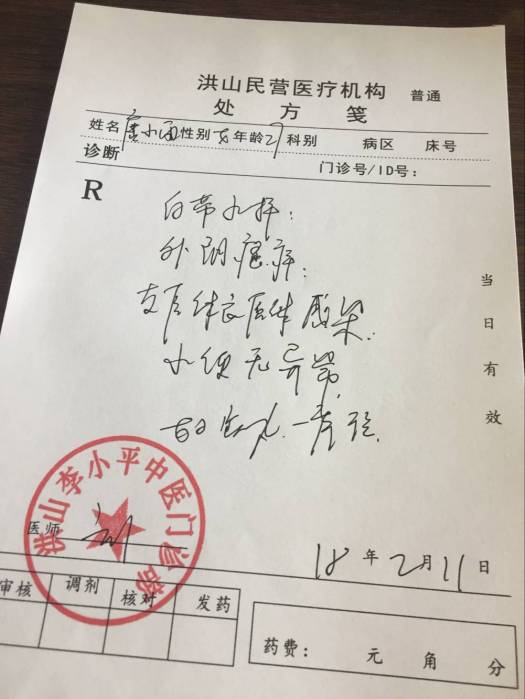 洪山民营医疗机构 普通
处方笺
姓名 小 性别 女 年龄 27 科别 病区 床号
诊断 门诊号/ID号：
R
白带
外阴瘙痒：
支原体衣原体感染
小便无异常
当日有效
洪山李小平中医门诊部
医师
18年2月11日
审核 调剂 核对 发药
药费： 元 角 分